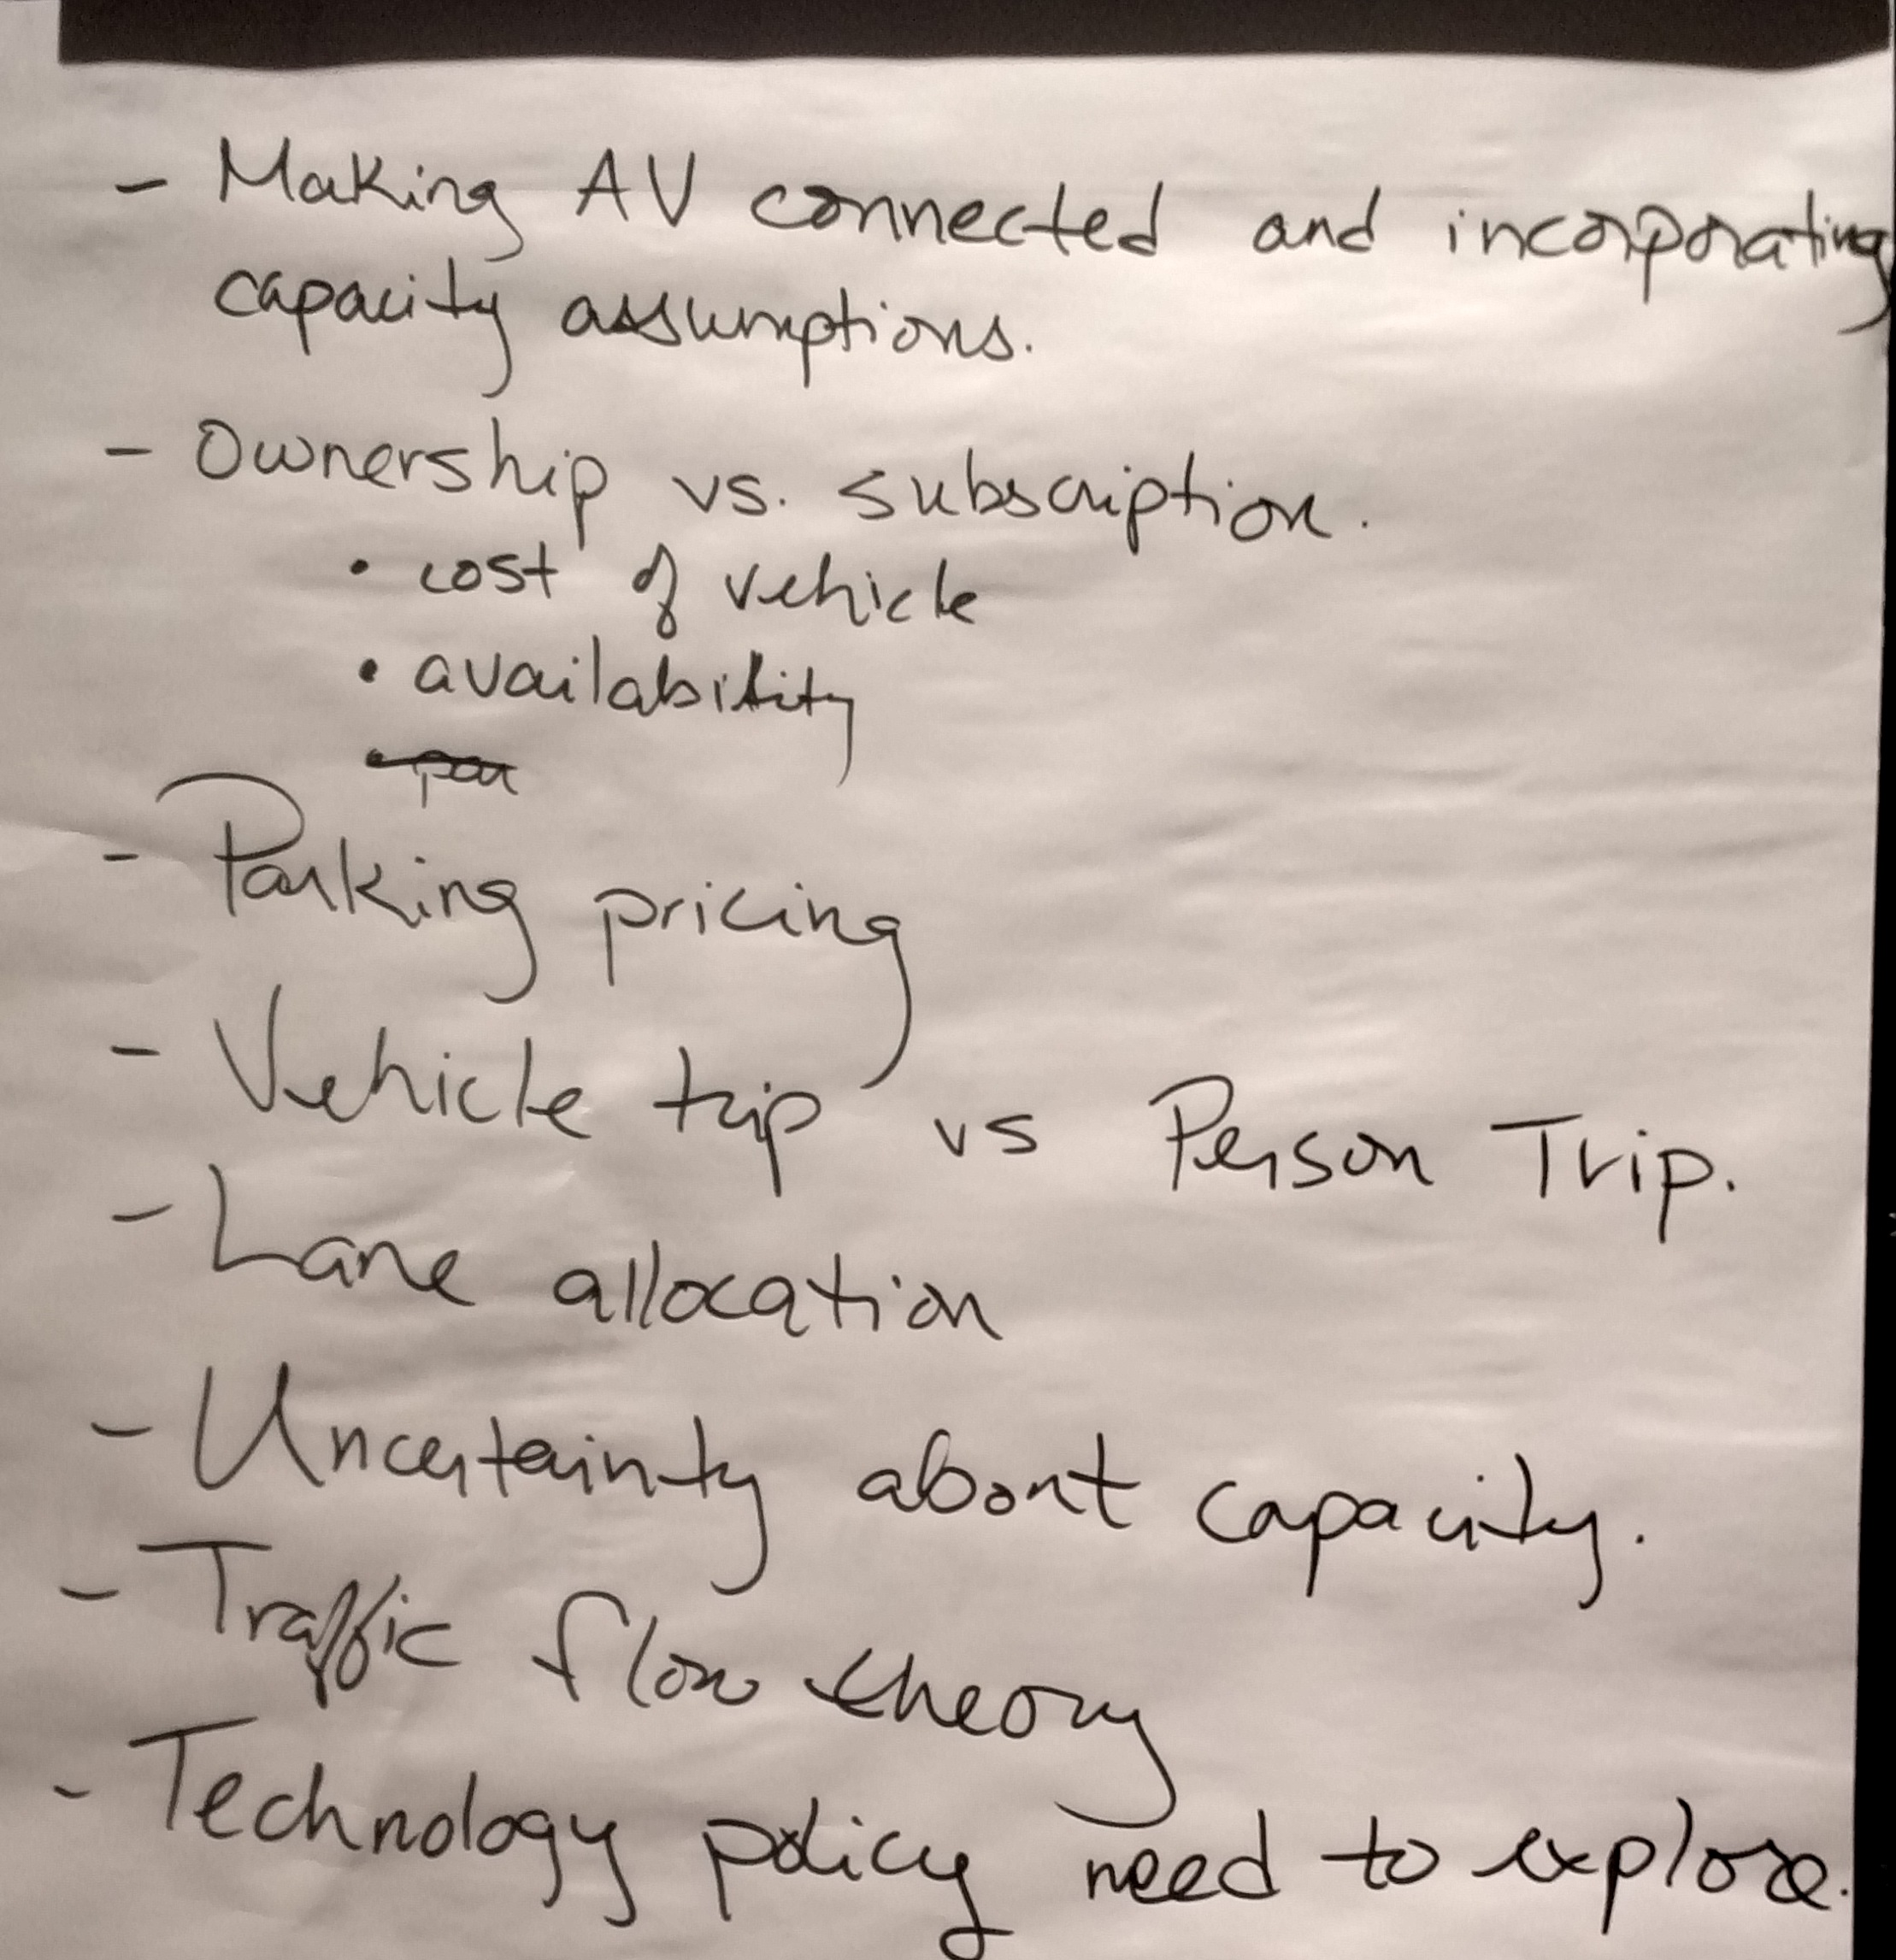 - Making AV connected and incorporating
capacity assumptions.
- Ownership vs. subscription.
• cost of vehicle
• availability
- Parking pricing
- Vehicle trip vs Person Trip.
- Lane allocation
- Uncertainty about capacity.
- Traffic flow theory
- Technology policy need to explore.